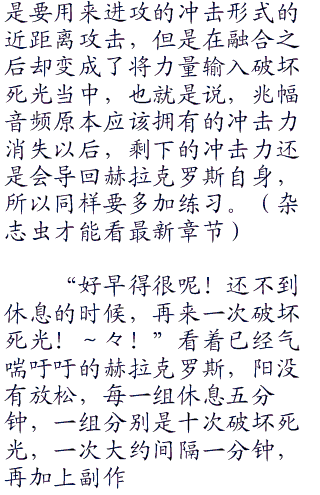 是要用来进攻的冲击形式的
近距离攻击，但是在融合之
后却变成了将力量输入破坏
死光当中，也就是说，兆幅
音频原本应该拥有的冲击力
消失以后，剩下的冲击力还
是会导回赫拉克罗斯自身，
所以同样要多加练习。（杂
志虫才能看最新章节）
“好早得很呢！还不到
休息的时候，再来一次破坏
死光！~々！”看着已经气
喘吁吁的赫拉克罗斯，阳没
有放松，每一组休息五分
钟，一组分别是十次破坏死
光，一次大约间隔一分钟，
再加上副作